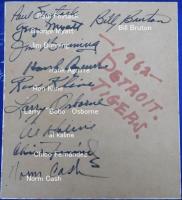 Paul Foytack
Bill Bruton
Bill Bruton
George Myatt
1962
DETROIT
TIGERS
Hank Aguirre
Hank Aguirre
Ron Kline
Ron Kline
Larry Osborne
Larry "Bobo" Osborne
Al Kaline
Al Kaline
Chico Fernandez
Norm Cash
Norm Cash